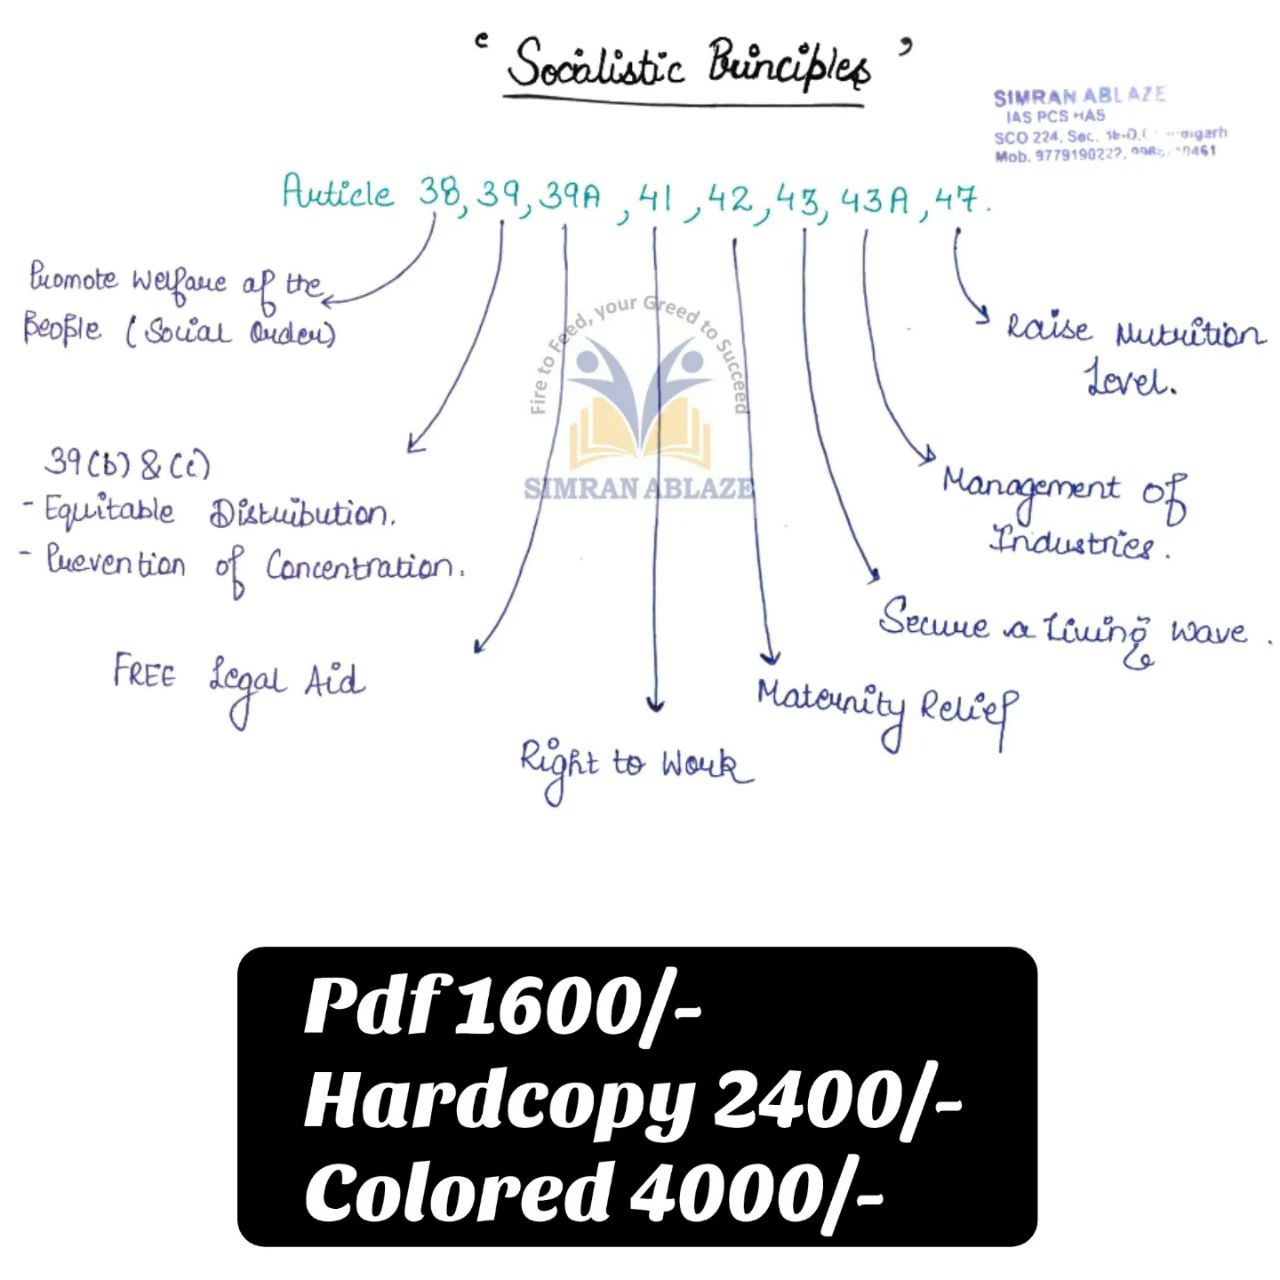 ‘ Socialistic Principles ’
SIMRAN ABLAZE
IAS PCS HAS
SCO 224, Sec.
Mob. 9779190222,
Article 38, 39, 39A , 41 , 42, 43, 43A , 47.
Promote Welfare of the
People (Social Order)
Raise Nutrition
Level.
Fire to Feed, your Greed to Succeed
SIMRAN ABLAZE
39(b) & (c)
- Equitable Distribution.
- Prevention of Concentration.
Management of
Industries.
Secure a Living Wave .
FREE Legal Aid
Maternity Relief
Right to Work
Pdf 1600/-
Hardcopy 2400/-
Colored 4000/-